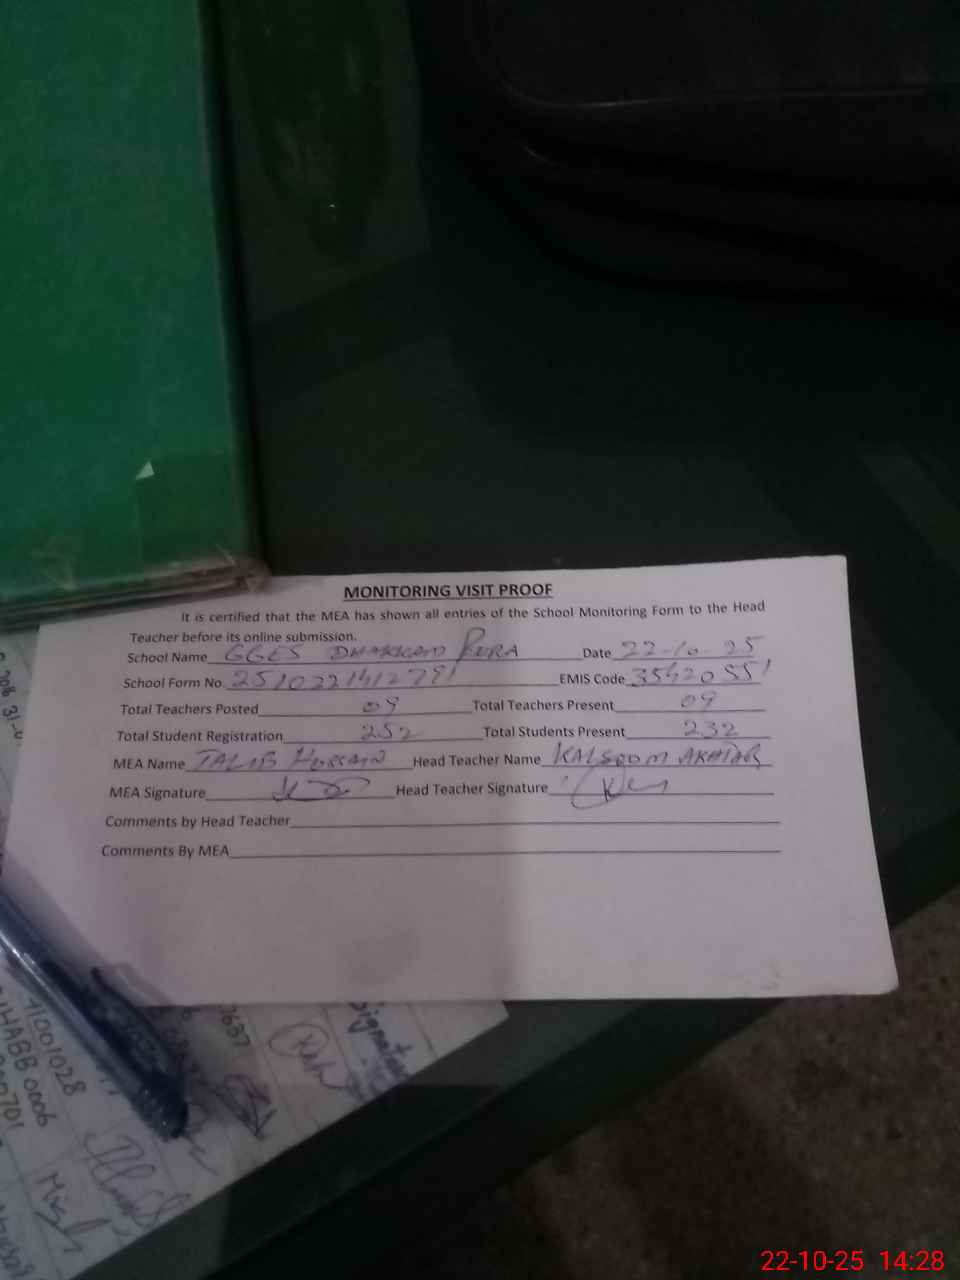 MONITORING VISIT PROOF
It is certified that the MEA has shown all entries of the School Monitoring Form to the Head
Teacher before its online submission.
School Name GGES DHAKKAD PURA Date 22-10-25
School Form No. EMIS Code 35420551
Total Teachers Posted 09 Total Teachers Present 09
Total Student Registration 252 Total Students Present 232
MEA Name TALIB HUSSAIN Head Teacher Name KALSOOM AKHTAR
MEA Signature Head Teacher Signature
Comments by Head Teacher
Comments By MEA
7637
Signature
41001028
0006
22-10-25 14:28